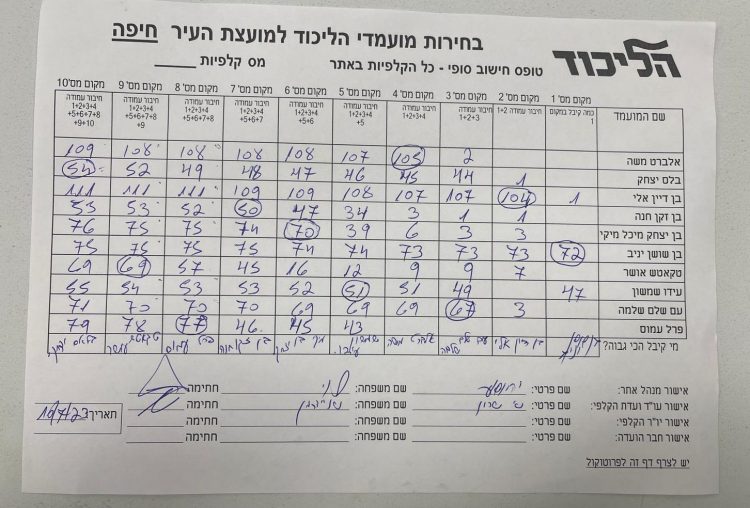 הליכוד
בחירות מועמדי הליכוד למועצת העיר חיפה
טופס חישוב סופי - כל הקלפיות באתר מס קלפיות
שם המועמד | מקום מס' 1 כמה קיבל במקום 1 | מקום מס' 2 חיבור עמודה 1+2 | מקום מס' 3 חיבור עמודה 1+2+3 | מקום מס' 4 חיבור עמודה 1+2+3+4 | מקום מס' 5 חיבור עמודה 1+2+3+4+5 | מקום מס' 6 חיבור עמודה 1+2+3+4+5+6 | מקום מס' 7 חיבור עמודה 1+2+3+4+5+6+7 | מקום מס' 8 חיבור עמודה 1+2+3+4+5+6+7+8 | מקום מס' 9 חיבור עמודה 1+2+3+4+5+6+7+8+9 | מקום מס' 10 חיבור עמודה 1+2+3+4+5+6+7+8+9+10
אלברט משה 2 105 107 108 108 108 108 109
בלס יצחק 1 44 45 46 47 48 49 52 54
בן דיין אלי 1 104 107 107 108 109 109 111 111 111
בן זקן חנה 1 1 3 34 47 50 52 53 53
בן יצחק מיכל מיקי 3 3 6 39 70 74 75 75 76
בן שושן יניב 72 73 73 73 74 74 75 75 75 75
טקאטש אושר 7 9 9 12 16 45 57 69 69
עידו שמשון 47 49 51 51 52 53 53 54 55
עם שלם שלמה 3 67 69 69 69 70 70 70 71
פרל עמוס 43 45 46 77 78 79
מי קיבל הכי גבוה? בן שושן יניב בן דיין אלי עם שלם שלמה אלברט משה
אישור מנהל אתר: שם פרטי: שם משפחה: חתימה
אישור עו"ד ועדת הקלפי: שם פרטי: שם משפחה: חתימה תאריך
אישור יו"ר הקלפי: שם פרטי: שם משפחה: חתימה
אישור חבר הועדה: שם פרטי: שם משפחה: חתימה
יש לצרף דף זה לפרוטוקול